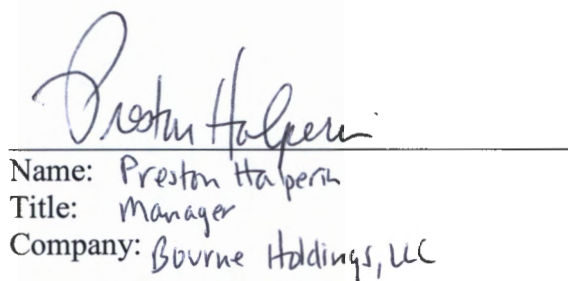 Preston Halperin
Name: Preston Halperin
Title: Manager
Company: Bourne Holdings, LLC